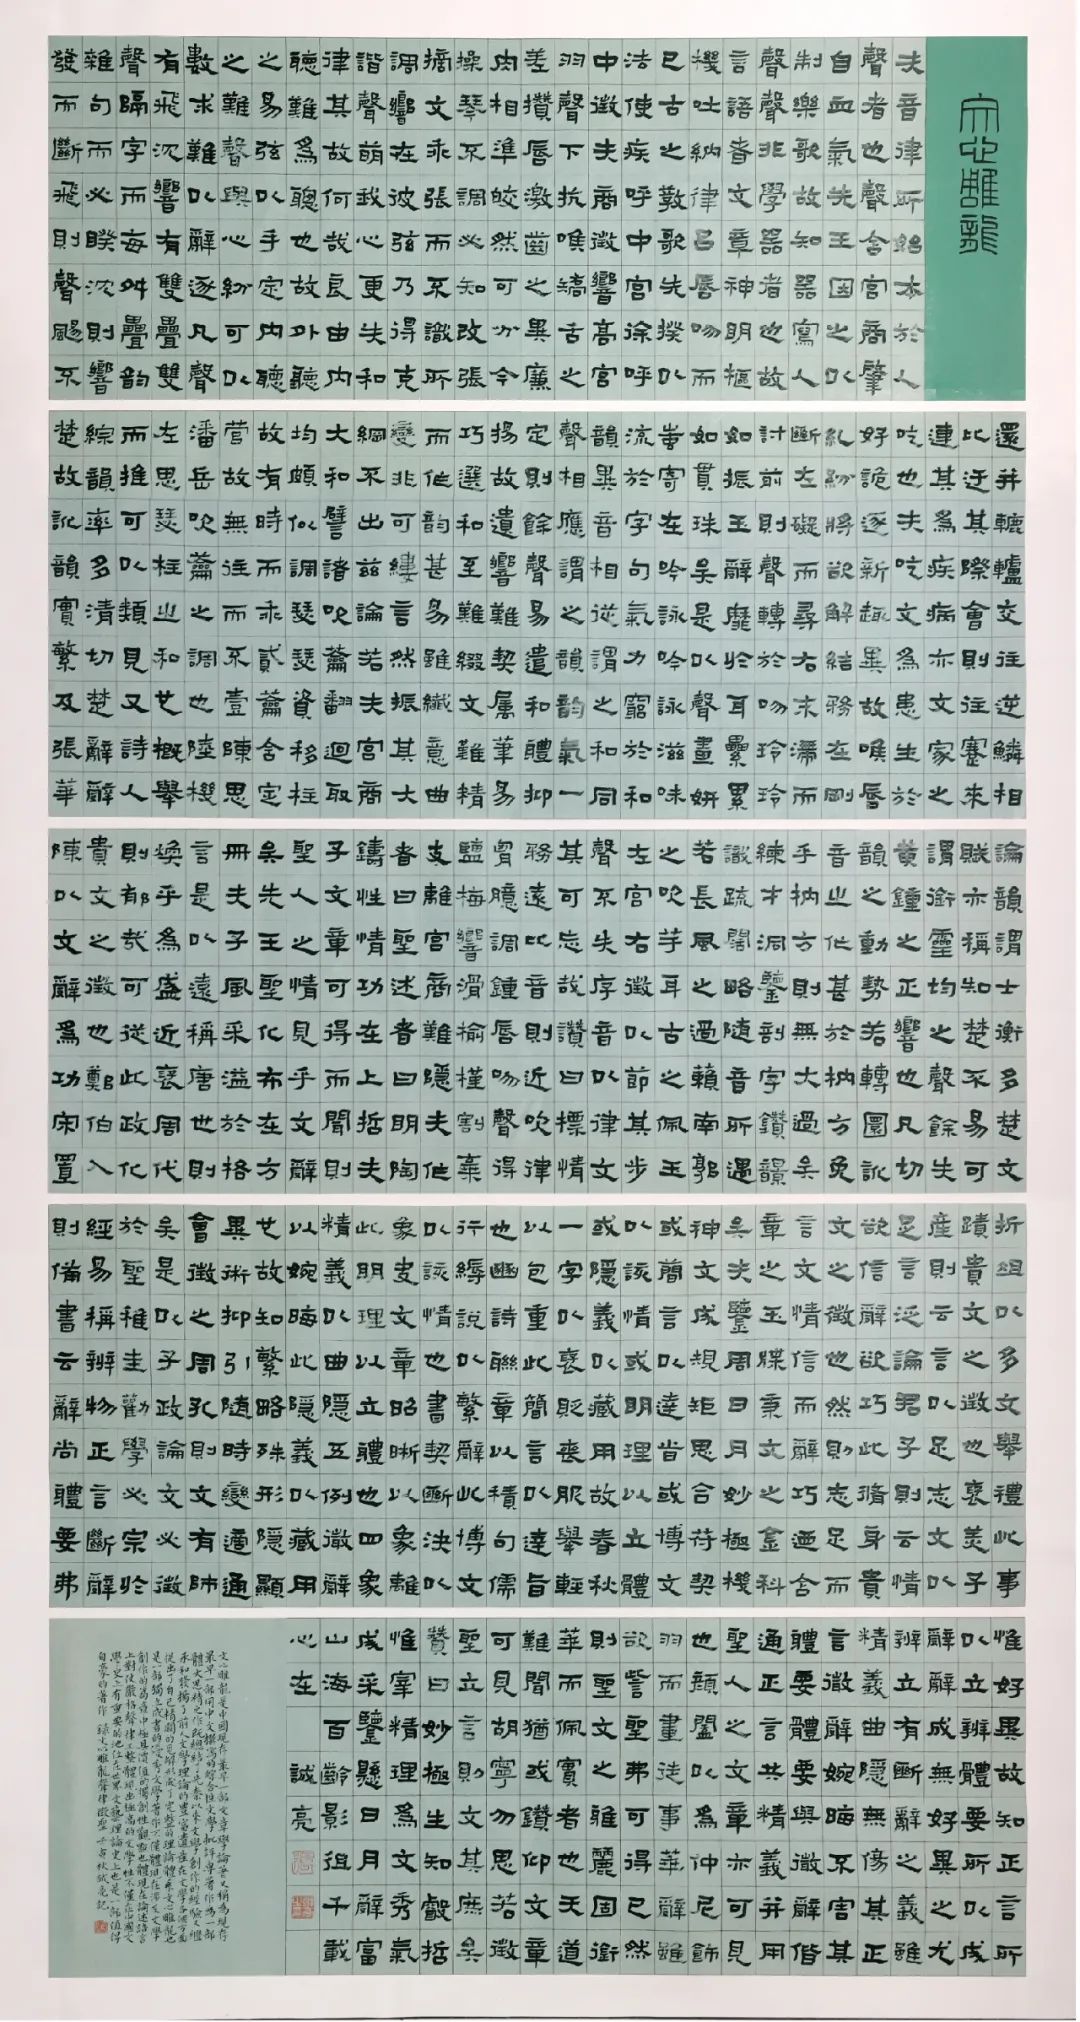 文心雕龍
夫音律所始本於人
聲者也聲含宮商肇
自血氣先王因之以
制樂歌故知器寫人
聲聲非學器者也故
言語者文章神明樞
機吐納律呂脣吻而
已古之教歌先揆以
法使疾呼中宮徐呼
中徵夫商徵響高宮
羽聲下抗喉矯舌之
差攢脣激齒之異廉
肉相準皎然可分今
操琴不調必知改張
摘文乖張而不識所
調響在彼弦乃得克
諧聲萌我心更失和
律其故何哉良由内
聽難爲聰也故外聽
之易弦以手定内聽
之難聲與心紛可以
數求難以辭逐凡聲
有飛沈響有雙疊雙
聲隔字而每舛疊韵
雜句而必睽沈則響
發而斷飛則聲颺不
還并轆轤交往逆鱗相
比迂其際會則往蹇來
連其爲疾病亦文家之
吃也夫吃文爲患生於
好詭逐新趣異故喉脣
糺紛將欲解結務在剛
斷左礙而尋右末滯而
討前則聲轉於吻玲玲
如振玉辭靡於耳纍累
如貫珠矣是以聲畫妍
蚩寄在吟詠吟詠滋味
流於字句氣力窮於和
韻異音相從謂之和同
聲相應謂之韻韵氣一
定則餘聲易遣和體抑
揚故遺響難契属筆易
巧選和至難綴文難精
而作韵甚易雖纖意曲
變非可縷言然振其大
綱不出茲論若夫宮商
大和譬諸吹籥翻迴取
均頗似調瑟瑟資移柱
故有時而乖貳籥含定
管故無往而不壹陳思
潘岳吹籥之調也陸機
左思瑟柱之和也概舉
而推可以類見又詩人
綜韻率多清切楚辭辭
楚故訛韻實繁及張華
論韻謂士衡多楚文
賦亦稱知楚不易可
謂銜靈均之聲餘失
黄鍾之正響也凡切
韻之動勢若轉圜訛
音之作甚於枘方免
乎枘方則無大過矣
練才洞鑒剖字鑽韻
識疏闊略隨音所遇
若長風之過籟南郭
之吹竽耳古之佩玉
左宮右徵以節其步
聲不失序音以律文
其可忘哉讚曰標情
務遠比音則近吹律
胷臆調鍾脣吻聲得
鹽梅響滑榆槿割棄
支離宮商難隱夫作
者曰聖述者曰明陶
鑄性情功在上哲夫
子文章可得而聞則
聖人之情見乎文辭
矣先王聖化布在方
冊夫子風采溢於格
言是以遠稱唐世則
煥乎爲盛近褒周代
則郁哉可從此政化
貴文之徵也鄭伯入
陳以文辭爲功宋置
折俎以多文舉禮此事
蹟貴文之徵也褒美子
産則云言以足志文以
足言泛論君子則云情
欲信辭欲巧此脩身貴
文之徵也然則志足而
言文情信而辭巧迺含
章之玉牒秉文之金科
矣夫鑒周日月妙極機
神文成規矩思合符契
或簡言以達旨或博文
以該情或明理以立體
或隱義以藏用故春秋
一字以褒貶喪服舉輕
以包重此簡言以達旨
也豳詩聯章以積句儒
行縟說以繁辭此博文
以該情也書契斷決以
象夬文章昭晰以象離
此明理以立體也四象
精義以曲隱五例徵辭
以婉晦此隱義以藏用
也故知繁略殊形隱顯
異術抑引隨時變適通
會徵之周孔則文有師
矣是以子政論文必徵
於聖稚圭勸學必宗於
經易稱辨物正言斷辭
則備書云辭尚體要弗
惟好異故知正言所
以立辨體要所以成
辭辭成無好異之尤
辨立有斷辭之義雖
精義曲隱無傷其正
言微辭婉晦不害其
體要體要與微辭偕
通正言共精義并用
聖人之文章亦可見
也顏闔以爲仲尼飾
羽而畫徒事華辭雖
欲訾聖弗可得已然
則聖文之雅麗固銜
華而佩實者也天道
難聞猶或鑽仰文章
可見胡寧勿思若徵
聖立言則文其庶矣
贊曰妙極生知叡哲
惟宰精理爲文秀氣
成采鑒懸日月辭富
山海百齡影徂千載
心在 誠亮
文心雕龍是中國現存最早一部文章學論著又稱爲現存
最早一部用中文撰寫的綜合性文學批評專著作爲一部
體大思精之作總結了先秦以來文學創作的經驗又繼
承和發揚了前人文學理論的豐富遺產在文學各個方面
提出了自己精闢的見解形成了完整的理論體系文心雕龍也
是一部獨立成書的 文學著作不僅體現在 文學
創作的 中極具價值的獨創性觀點也體現在論述語言
上對使嚴格聲律 整體現出極高的文學性不僅在中國文
學史上有重要的地位在世界文藝理論史上也是一部值得
自豪的著作 錄文心雕龍聲律徵聖 秋 亮記